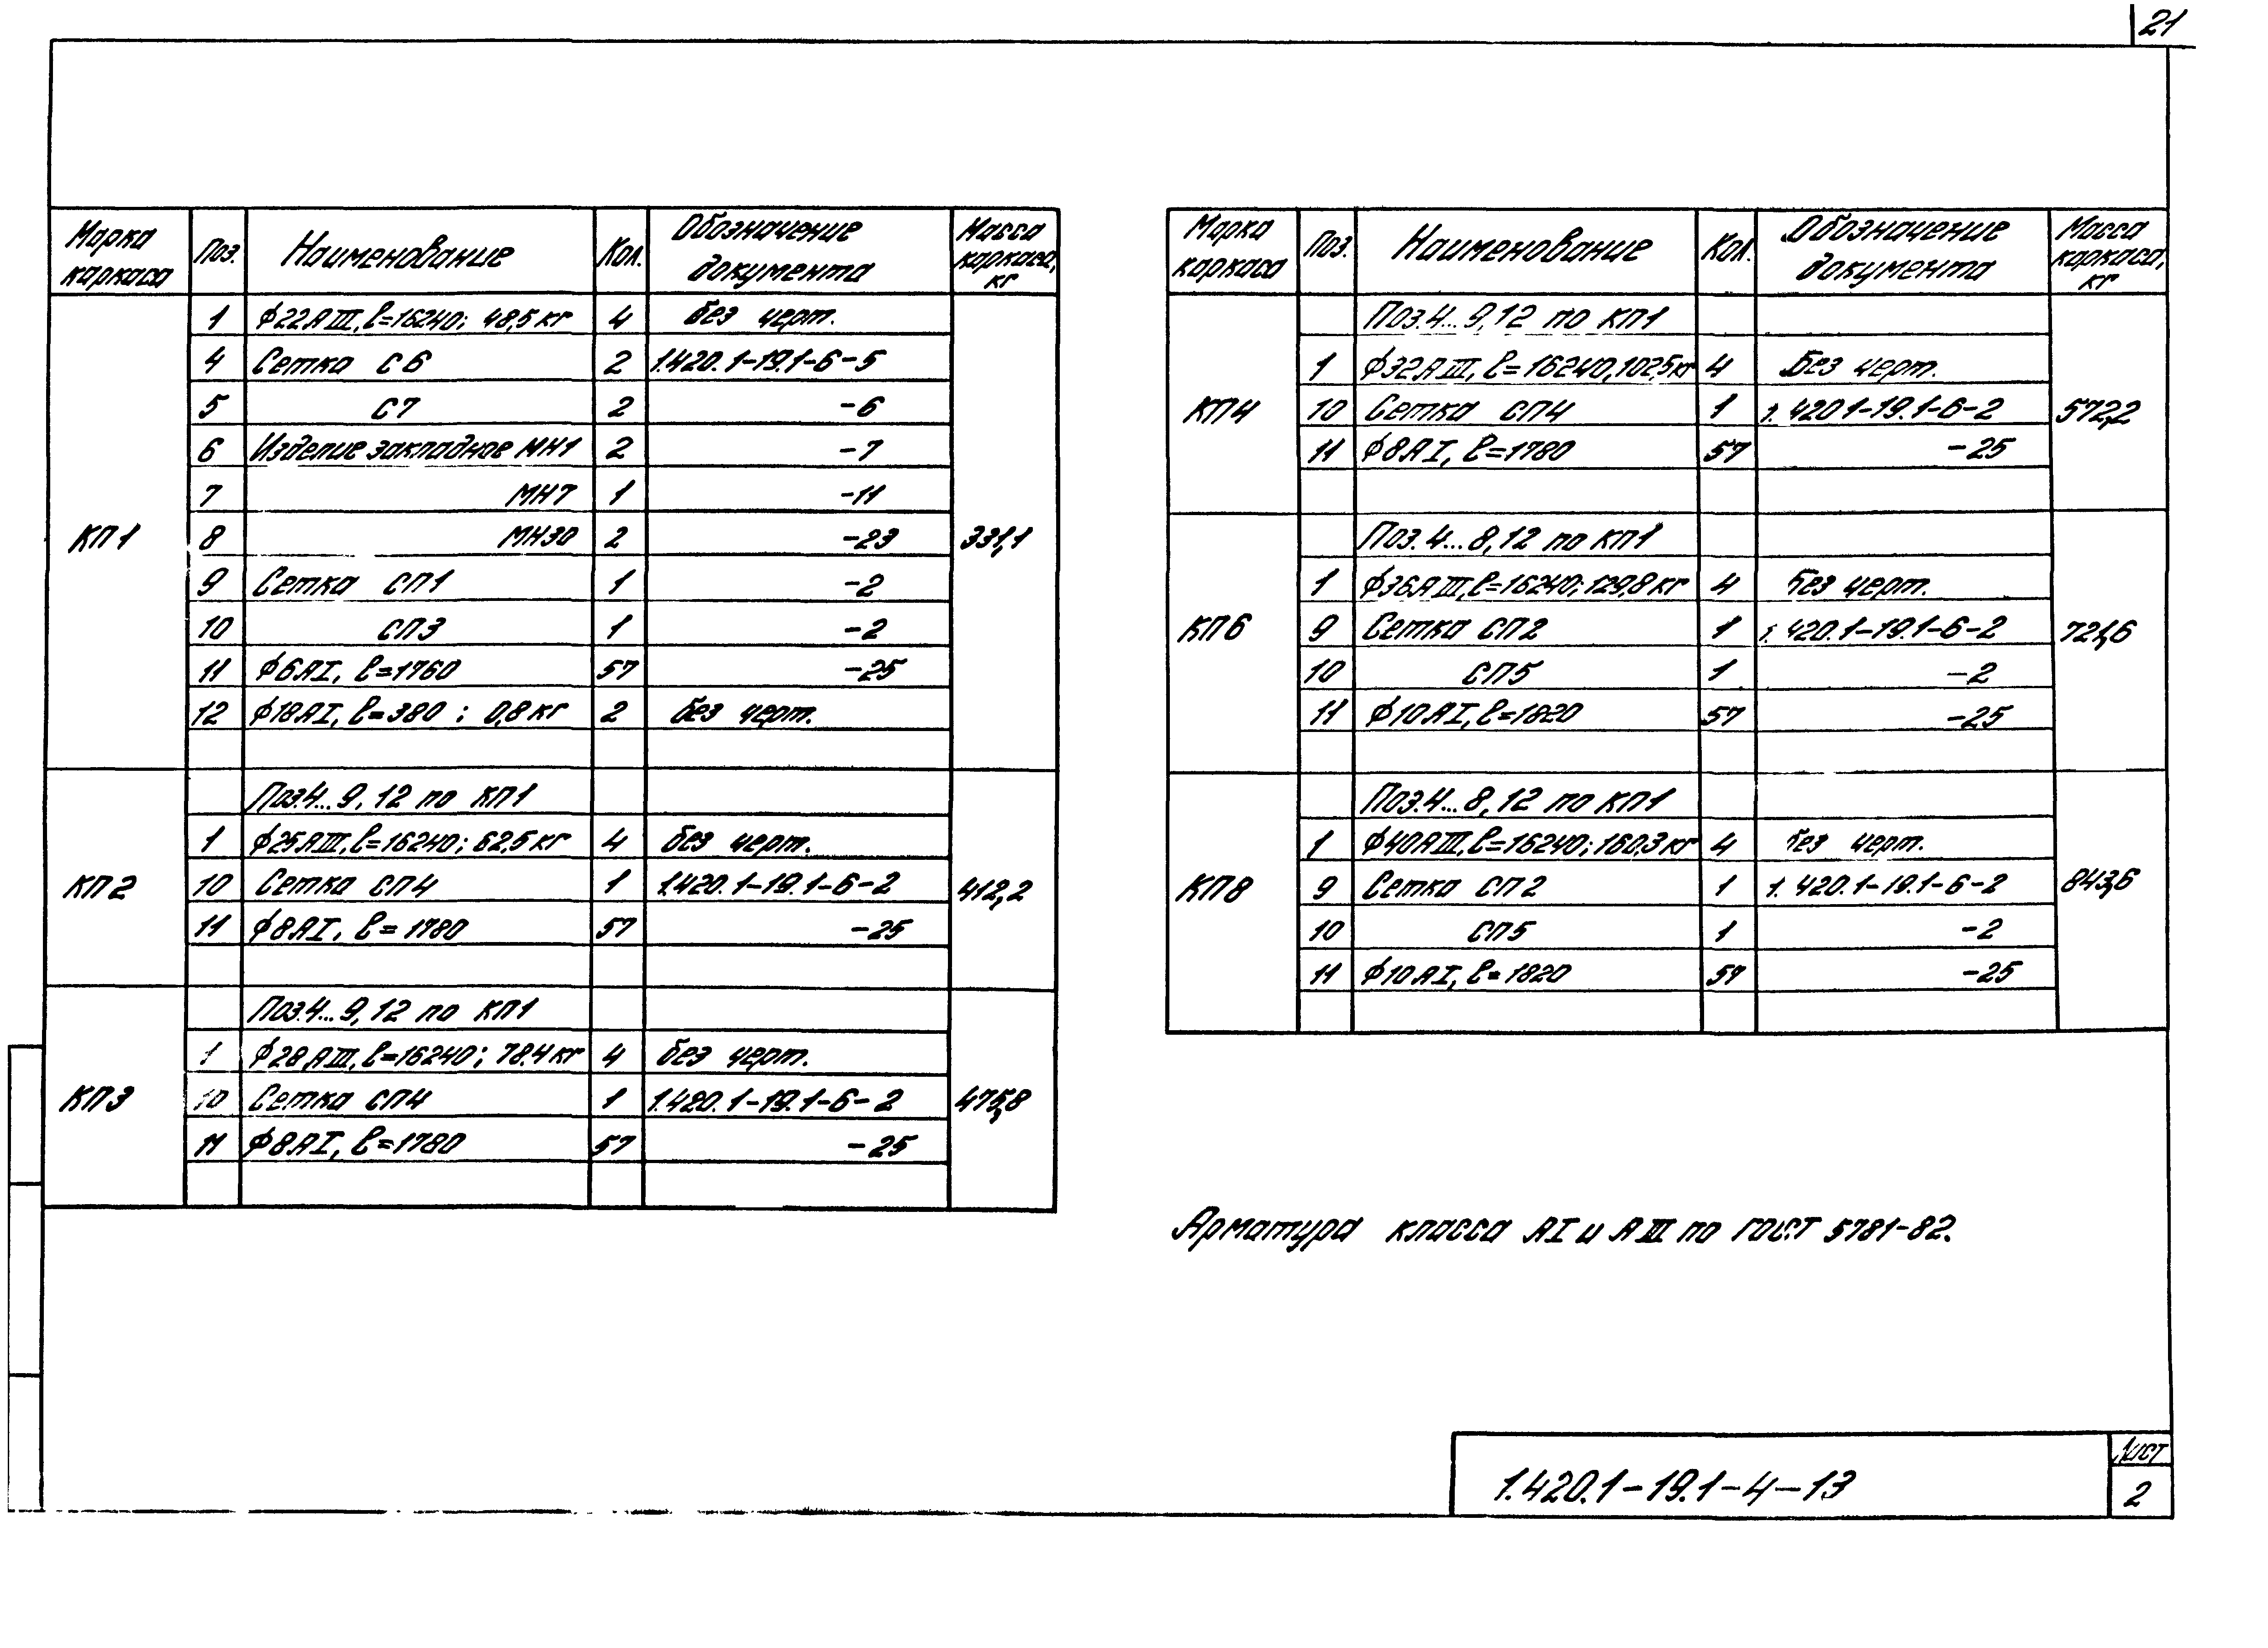 21
Марка каркаса Поз. Наименование Кол. Обозначение документа Масса каркаса, кг
КП1 331,1
1 ф22АIII, ℓ=16240; 48,5 кг 4 без черт.
4 Сетка С6 2 1.420.1-19.1-6-5
5 С7 2 -6
6 Изделие закладное МН1 2 -7
7 МН7 1 -11
8 МН30 2 -23
9 Сетка СП1 1 -2
10 СП3 1 -2
11 ф6АI, ℓ=1760 57 -25
12 ф18АI, ℓ=380 ; 0,8 кг 2 без черт.
КП2 412,2
Поз.4...9, 12 по КП1
1 ф25АIII, ℓ=16240; 62,5 кг 4 без черт.
10 Сетка СП4 1 1.420.1-19.1-6-2
11 ф8АI, ℓ=1780 57 -25
КП3 475,8
Поз.4...9, 12 по КП1
1 ф28АIII, ℓ=16240; 78,4 кг 4 без черт.
10 Сетка СП4 1 1.420.1-19.1-6-2
11 ф8АI, ℓ=1780 57 -25
Марка каркаса Поз. Наименование Кол. Обозначение документа Масса каркаса, кг
КП4 572,2
Поз.4...9,12 по КП1
1 ф32АIII, ℓ=16240,102,5 кг 4 Без черт.
10 Сетка СП4 1 1.420 1-19.1-6-2
11 ф8АI, ℓ=1780 57 -25
КП6 721,6
Поз. 4...8,12 по КП1
1 ф36АIII, ℓ=16240; 129,8 кг 4 Без черт.
9 Сетка СП2 1 1.420.1-19.1-6-2
10 СП5 1 -2
11 ф10АI, ℓ=1820 57 -25
КП8 843,6
Поз.4...8, 12 по КП1
1 ф40АIII, ℓ=16240; 160,3 кг 4 Без черт.
9 Сетка СП2 1 1.420.1-19.1-6-2
10 СП5 1 -2
11 ф10АI, ℓ=1820 57 -25
Арматура класса АI и АIII по ГОСТ 5781-82.
1.420.1-19.1-4-13
Лист
2